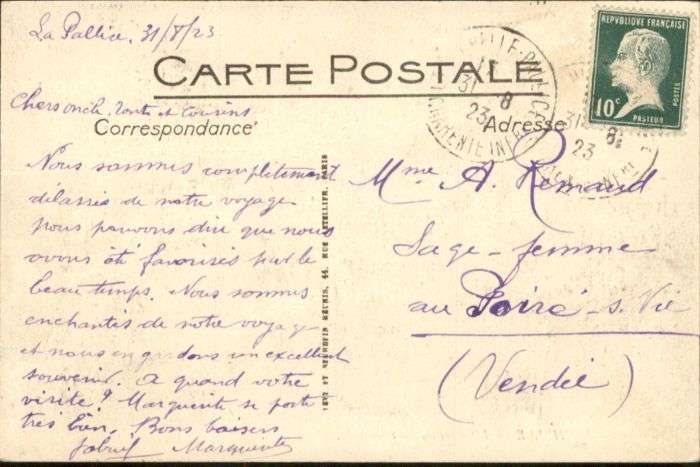 La Pallice, 31/8/23
CARTE POSTALE
Chers oncle, tante et cousins
Correspondance
Nous sommes complètement
délassés de notre voyage
nous pouvons dire que nous
avons été favorisés par le
beau temps. Nous sommes
enchantés de notre voyage
et nous en gardons un excellent
souvenir. A quand votre
visite? Marguerite se porte
très bien. Bons baisers
Marguerite
LEVY ET NEURDEIN RÉUNIS, 44, RUE LETELLIER, PARIS
REPVBLIQVE FRANÇAISE
10c
POSTES
PASTEUR
31 8
23
CHARENTE INFRE
31 8
23
Adresse
Mme A. Renaud
Sage-femme
au Poiré-s-Vie
(Vendée)